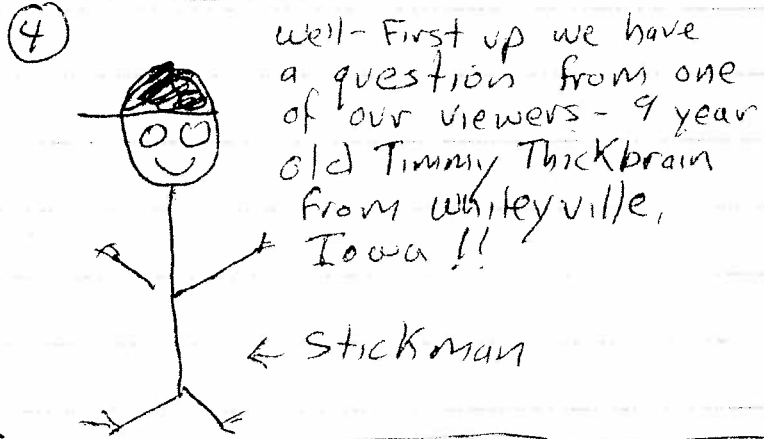 4
Well - First up we have
a question from one
of our viewers - 9 year
old Timmy Thickbrain
from Whiteyville,
Iowa !!
← Stickman